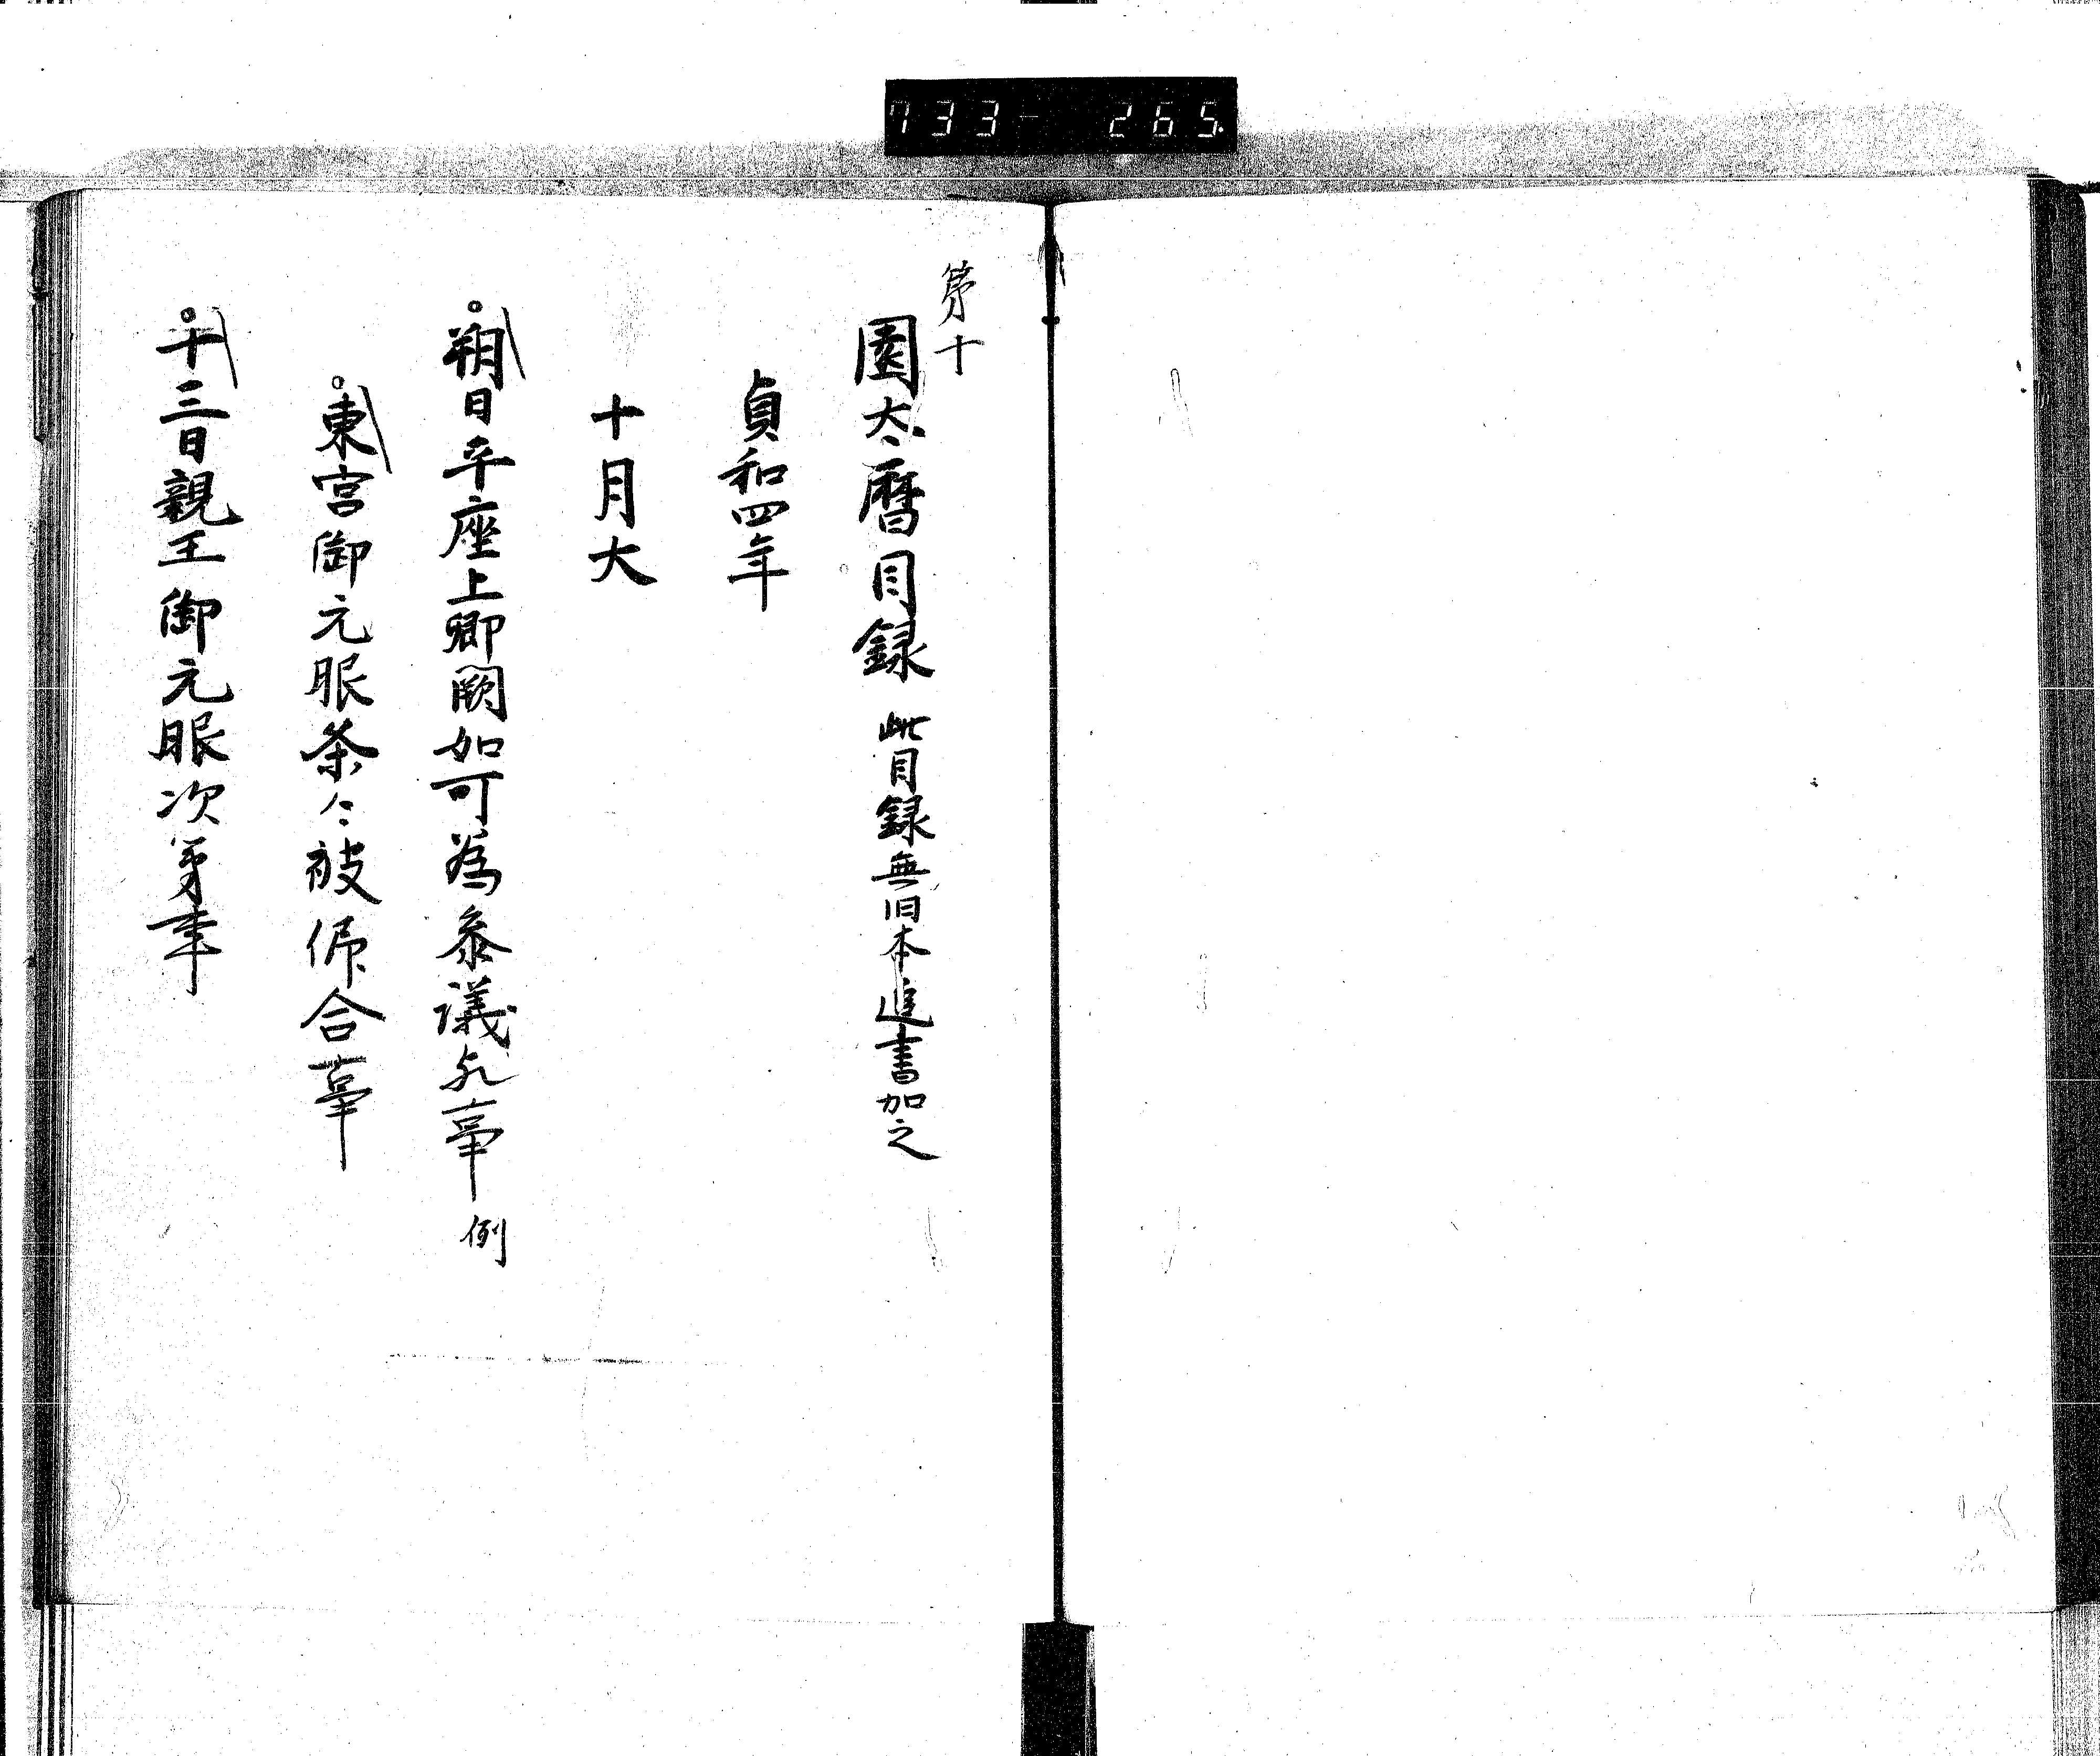 733- 265
第十
園太暦目録 此目録無旧本追書加之
貞和四年
十月大
朔日平座上卿闕如可為参議哉事 例
東宮御元服条々被仰合事
十三日親王御元服次第事